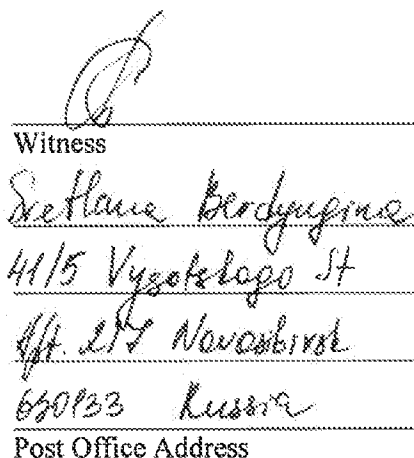 Witness
Svetlana Berdyugina
41/5 Vysotskogo St
Apt. Novosibirsk
630133 Russia
Post Office Address